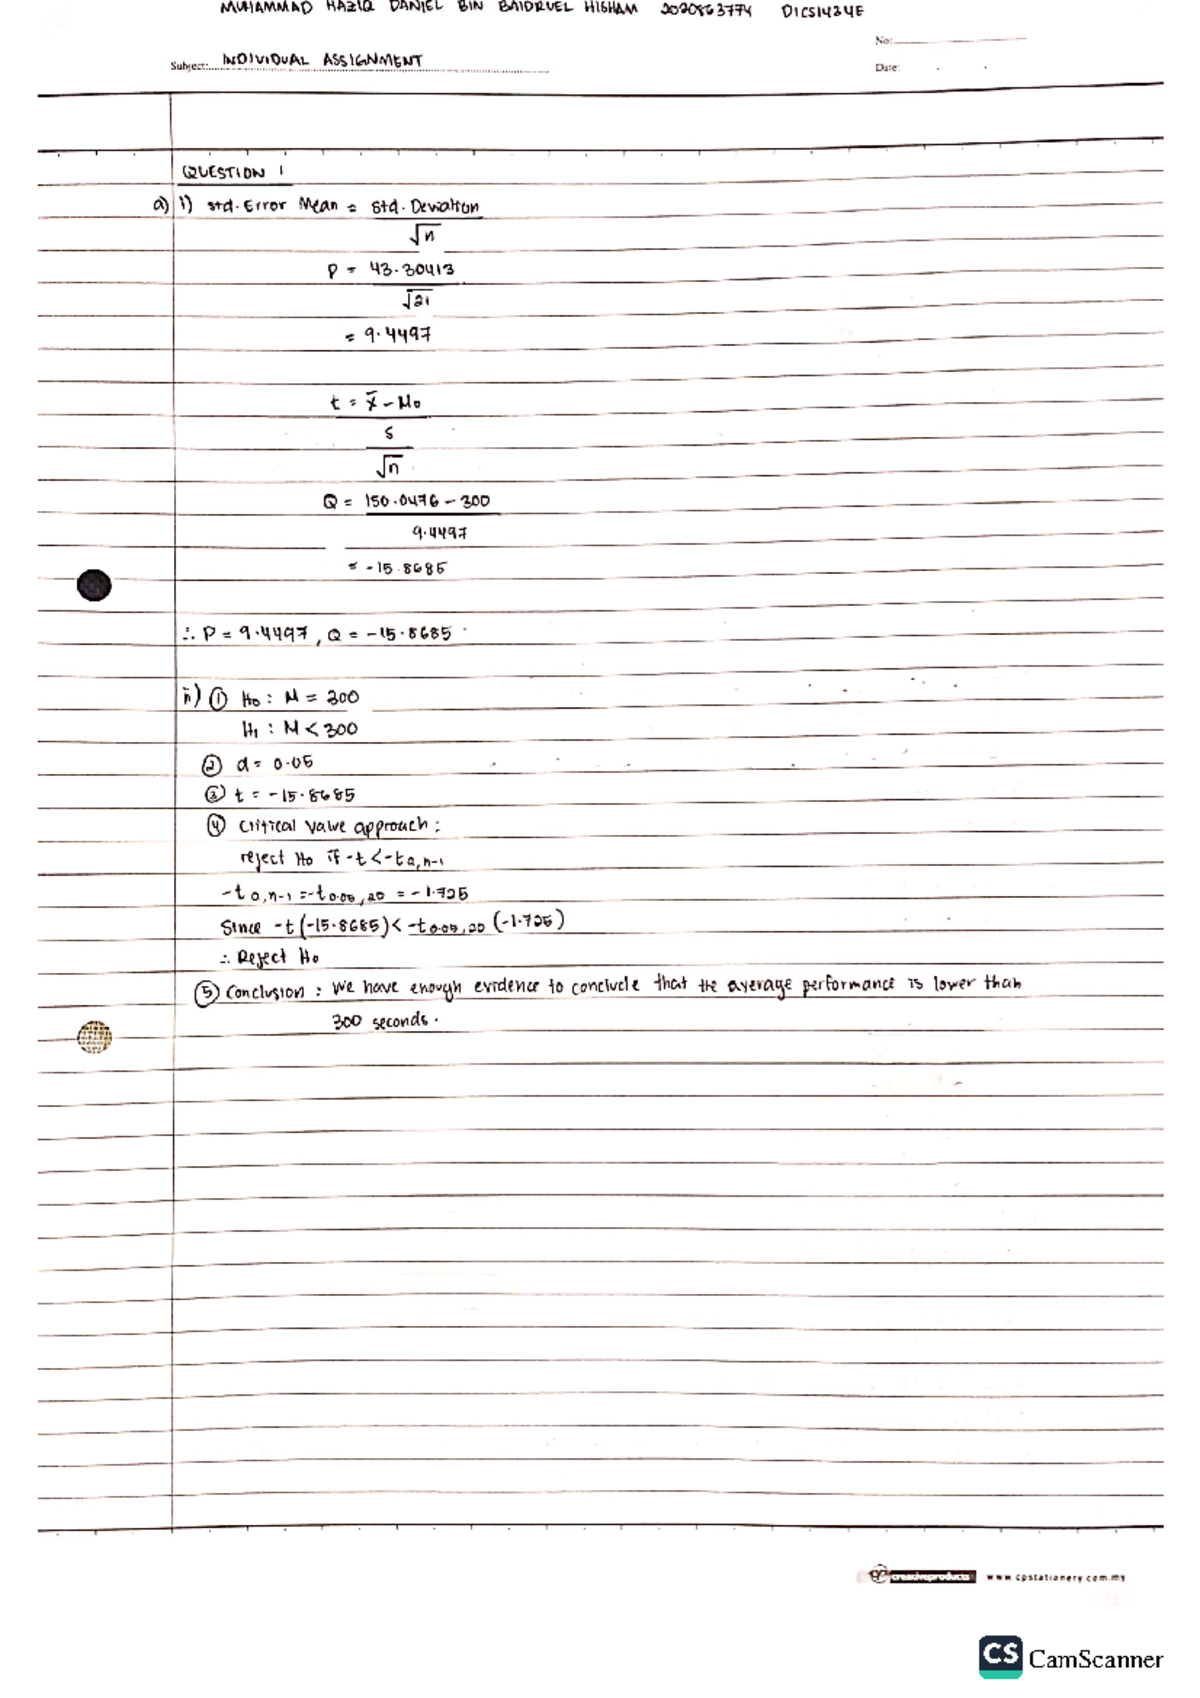 MUHAMMAD HAZIQ DANIEL BIN BAIDRUEL HISHAM 2020863774 D1CS1434E
No:
Subject: INDIVIDUAL ASSIGNMENT
Date:
QUESTION 1
a) i) Std. Error Mean = Std. Deviation
√n
P = 43.30413
√21
= 9.4497
t = x̄ - M₀
s
√n
Q = 150.0476 - 300
9.4497
= -15.8685
∴ P = 9.4497, Q = -15.8685
ii) ① H₀ : M = 300
H₁ : M < 300
② α = 0.05
③ t = -15.8685
④ Critical value approach :
reject H₀ if -t < -tα, n-1
-tα, n-1 = -t0.05, 20 = -1.725
Since -t (-15.8685) < -t0.05, 20 (-1.725)
∴ Reject H₀
⑤ Conclusion : We have enough evidence to conclude that the average performance is lower than
300 seconds.
creativeproducts www.cpstationery.com.my
CS CamScanner